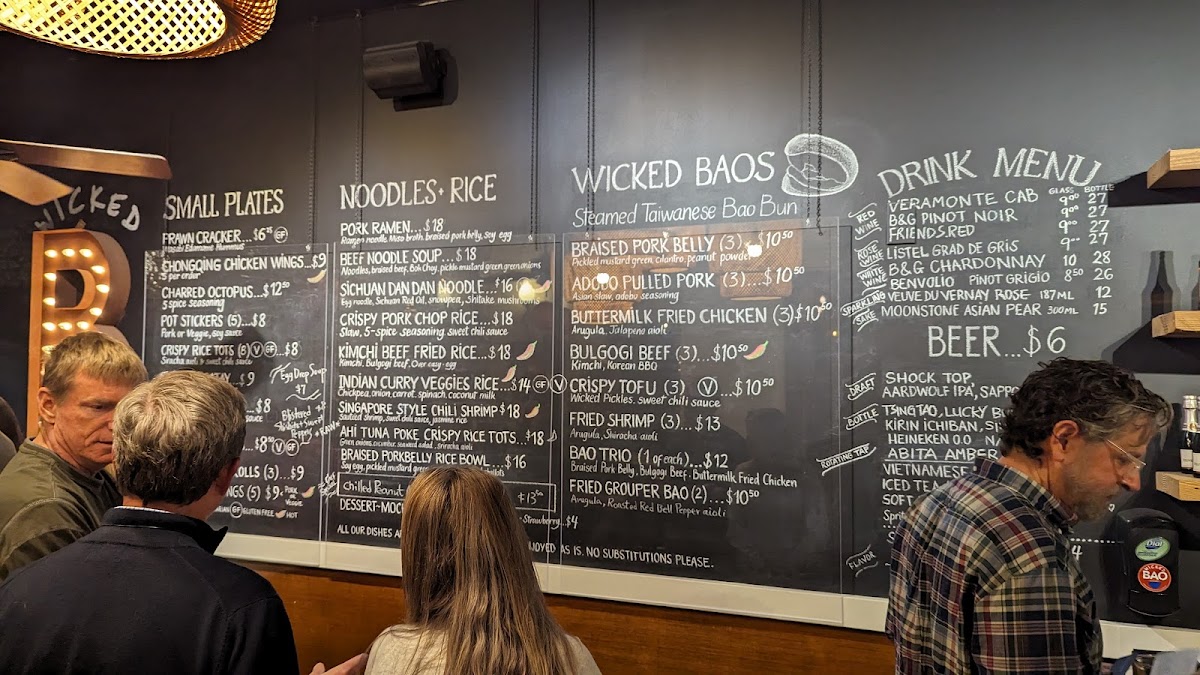 WICKED
B
SMALL PLATES
FRAWN CRACKER...$6.25 GF
Wasabi Edamame Hummus
CHONGQING CHICKEN WINGS...$9
5 per order
CHARRED OCTOPUS...$12.50
5 spice seasoning
POT STICKERS (5)...$8
Pork or Veggie, Soy sauce
CRISPY RICE TOTS (6) V GF...$8
Siracha aioli + sweet chili sauce
$9
Egg Drop Soup
$7
Blistered
$8
$8.50 V GF
ROLLS (3)...$9
NGS (5) $9
GF GLUTEN FREE
HOT
NOODLES + RICE
PORK RAMEN...$18
Ramen noodle, Miso broth, braised pork belly, soy egg
BEEF NOODLE SOUP...$18
Noodles, braised beef, Bok Choy, pickle mustard green, green onions
SICHUAN DAN DAN NOODLE...$16
Egg noodle, Sichuan Red Oil, snowpea, shiitake mushrooms
CRISPY PORK CHOP RICE...$18
Slaw, 5-spice seasoning, sweet chili sauce
KIMCHI BEEF FRIED RICE...$18
Kimchi, Bulgogi beef, Over easy-egg
INDIAN CURRY VEGGIES RICE...$14 GF V
Chickpea, onion, carrot, spinach, coconut milk
SINGAPORE STYLE CHILI SHRIMP $18
Sauteed shrimp, sweet chili sauce, jasmine rice
AHI TUNA POKE CRISPY RICE TOTS...$18
Green onions, cucumber, seaweed salad, sriracha aioli
BRAISED PORKBELLY RICE BOWL...$16
Soy egg, pickled mustard green
Chilled Peanut
$13.50
DESSERT-MOC
Strawberry...$4
ALL OUR DISHES A
NJOYED AS IS. NO SUBSTITUTIONS PLEASE.
WICKED BAOS
Steamed Taiwanese Bao Bun
BRAISED PORK BELLY (3)...$10.50
Pickled mustard green, cilantro, peanut powder
ADOBO PULLED PORK (3)...$10.50
Asian slaw, adobo seasoning
BUTTERMILK FRIED CHICKEN (3) $10.50
Arugula, Jalapeno aioli
BULGOGI BEEF (3)...$10.50
Kimchi, Korean BBQ
CRISPY TOFU (3) V...$10.50
Wicked Pickles, sweet chili sauce
FRIED SHRIMP (3)...$13
Arugula, Shiracha aioli
BAO TRIO (1 of each)...$12
Braised Pork Belly, Bulgogi Beef, Buttermilk Fried Chicken
FRIED GROUPER BAO (2)...$10.50
Arugula, Roasted Red Bell Pepper aioli
DRINK MENU
GLASS BOTTLE
RED WINE
VERAMONTE CAB 9.00 27
B&G PINOT NOIR 9.00 27
FRIENDS.RED 9.00 27
ROSE WINE
LISTEL GRAD DE GRIS 9.00 27
WHITE WINE
B&G CHARDONNAY 10 28
BENVOLIO PINOT GRIGIO 8.50 26
SPARKLING
VEUVE DU VERNAY ROSE 187ML 12
SAKE
MOONSTONE ASIAN PEAR 300ML 15
BEER...$6
DRAFT
SHOCK TOP
AARDWOLF IPA, SAPP
BOTTLE
TSINGTAO, LUCKY BU
KIRIN ICHIBAN, S
HEINEKEN 0.0 NA
ABITA AMBER
ROTATING TAP
VIETNAMESE
ICED TEA
SOFT
FLAVOR
4
Dial
WICKED
BAO